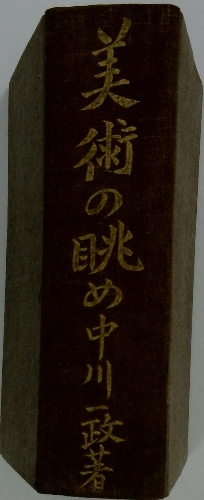 美術の眺め中川一政著